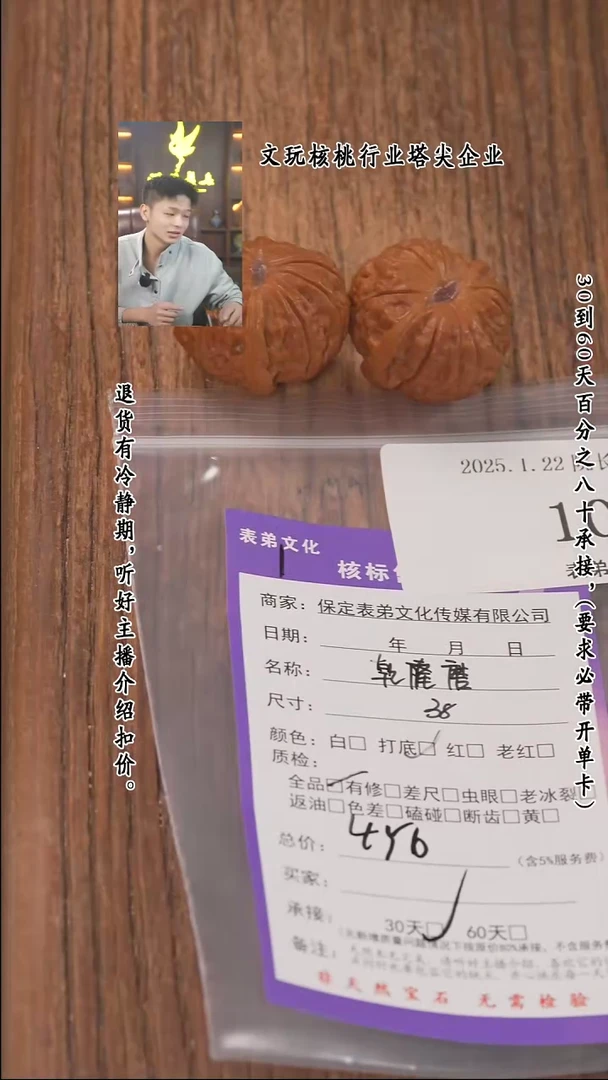 文玩核桃行业塔尖企业
30到60天百分之八十承接，（要求必带开单卡）
退货有冷静期，听好主播介绍扣价。
2025.1.22
10
表弟
表弟文化
核标
商家：保定表弟文化传媒有限公司
日期： 年 月 日
名称：乾隆
尺寸：38
颜色：白□ 打底□ 红□ 老红□
质检：
全品□有修□差尺□虫眼□老冰裂
返油□色差□磕碰□断齿□黄□
总价：446（含5%服务费）
买家：
承接： 30天□ 60天□
备注：
非天然宝石 无需检验